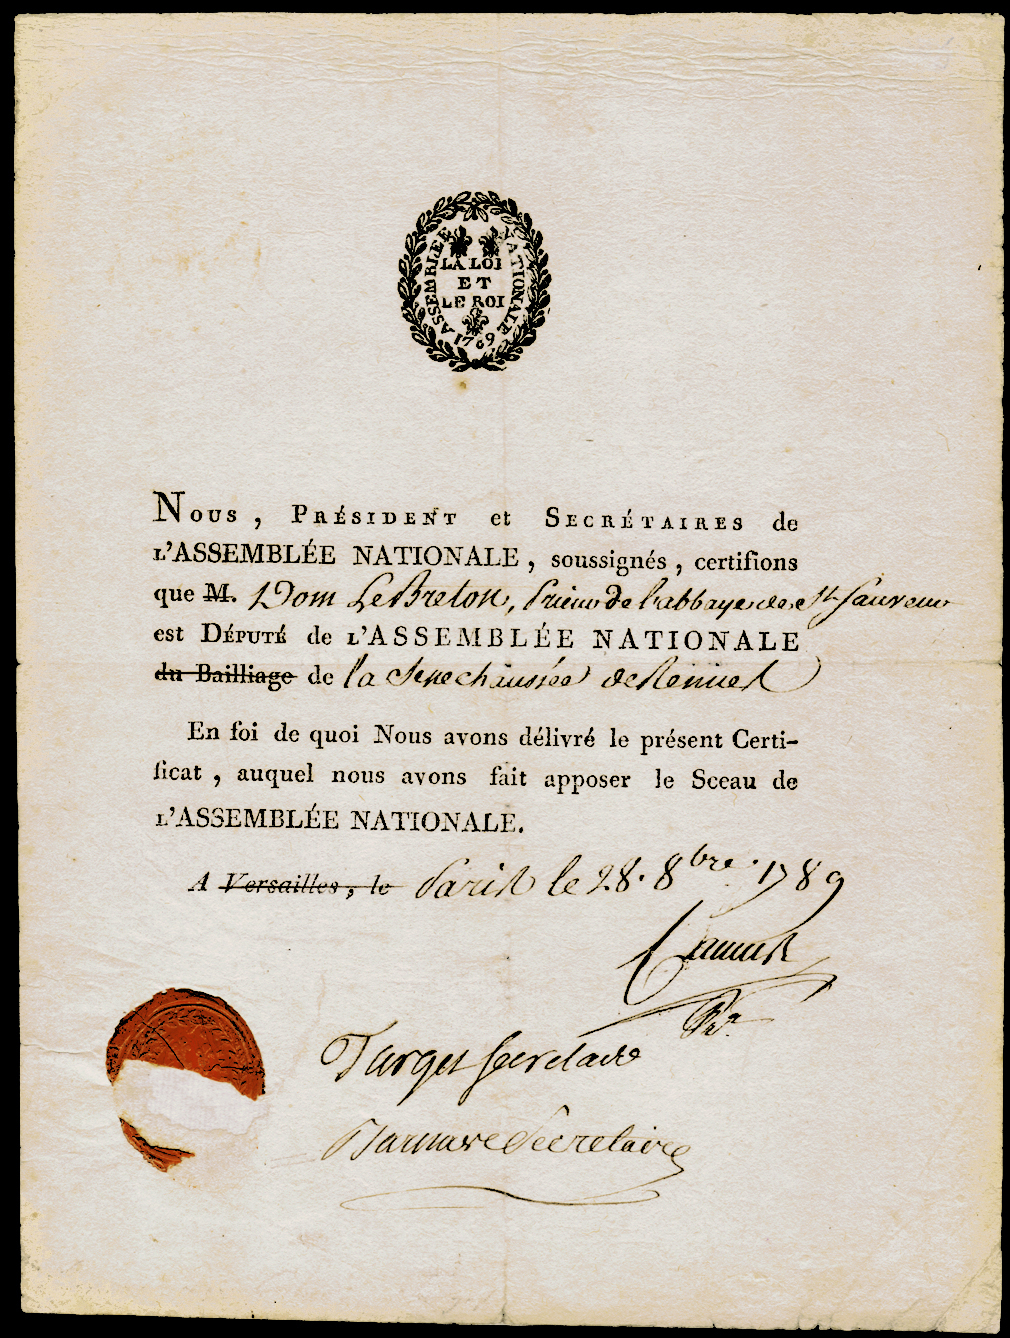 ASSEMBLÉE NATIONALE
LA LOI
ET
LE ROI
1789
NOUS, PRÉSIDENT et SECRÉTAIRES de
L'ASSEMBLÉE NATIONALE, soussignés, certifions
que M. Dom Le Breton, Prieur de l'abbaye de St. Sauveur
est DÉPUTÉ de L'ASSEMBLÉE NATIONALE
du Bailliage de la Senechaussée de Rennes
En foi de quoi Nous avons délivré le présent Certi-
ficat, auquel nous avons fait apposer le Sceau de
L'ASSEMBLÉE NATIONALE.
A Versailles, le Paris le 28. 8bre. 1789
Camus
Target Secretaire
Barnave Secretaire